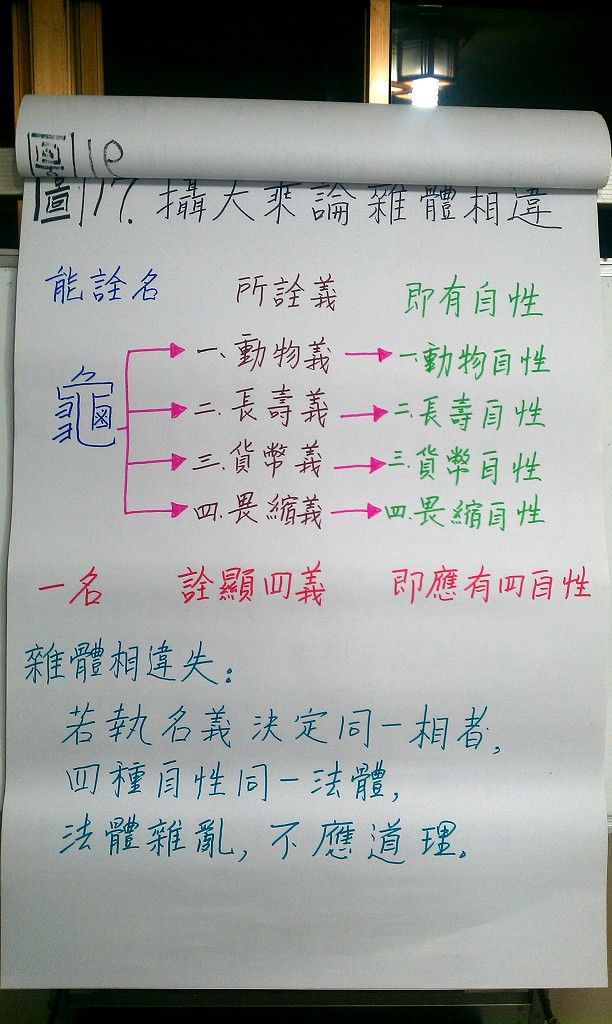 圖18
圖17. 攝大乘論雜體相違
能詮名 所詮義 即有自性
龜
一、動物義 一、動物自性
二.長壽義 二.長壽自性
三.貨幣義 三.貨幣自性
四.畏縮義 四.畏縮自性
一名 詮顯四義 即應有四自性
雜體相違失:
若執名義決定同一相者,
四種自性同一法體,
法體雜亂,不應道理。